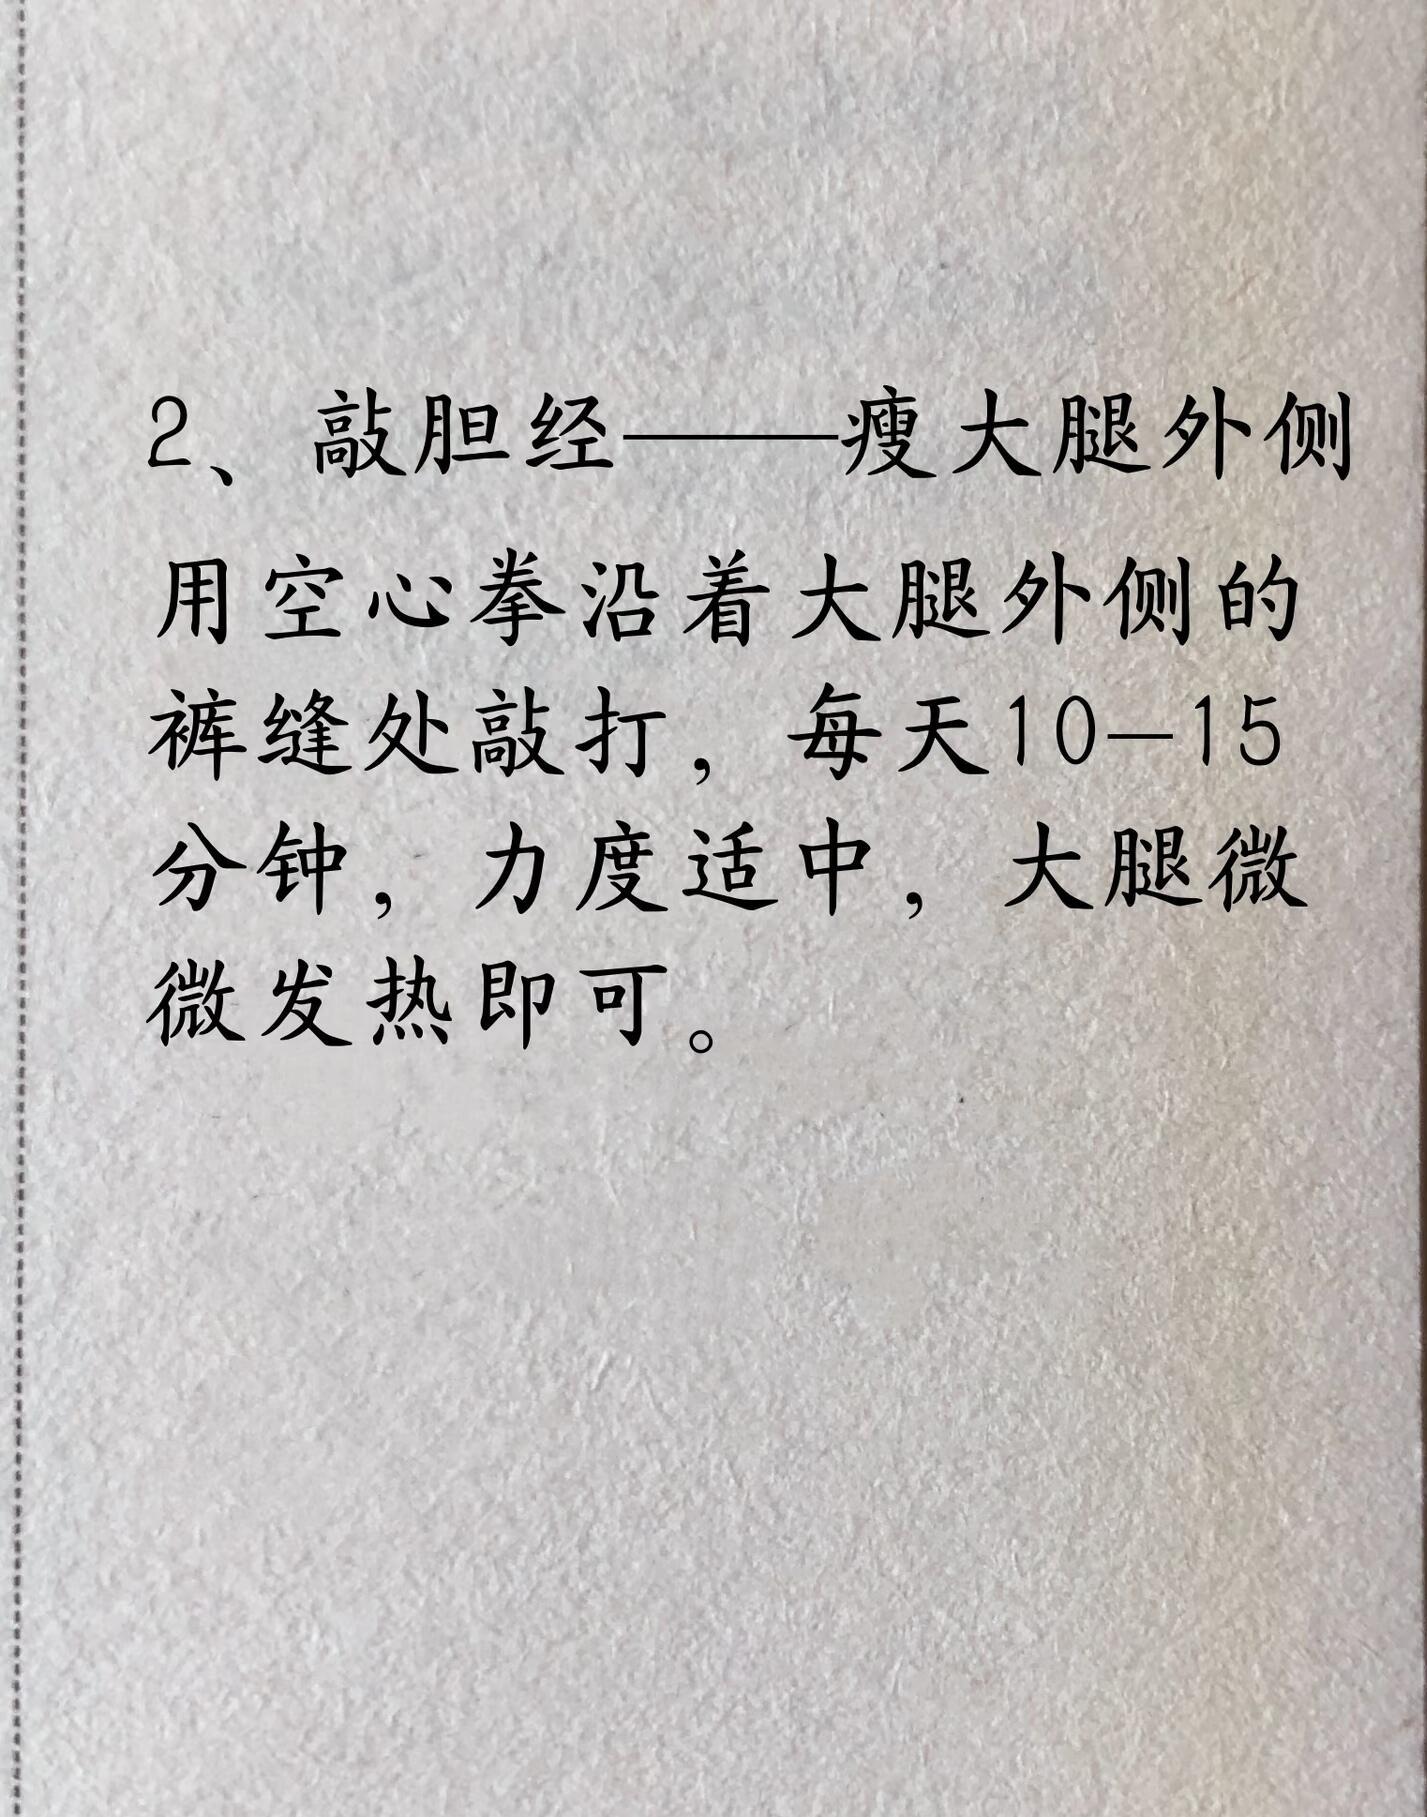 2、敲胆经——瘦大腿外侧
用空心拳沿着大腿外侧的
裤缝处敲打，每天10—15
分钟，力度适中，大腿微
微发热即可。